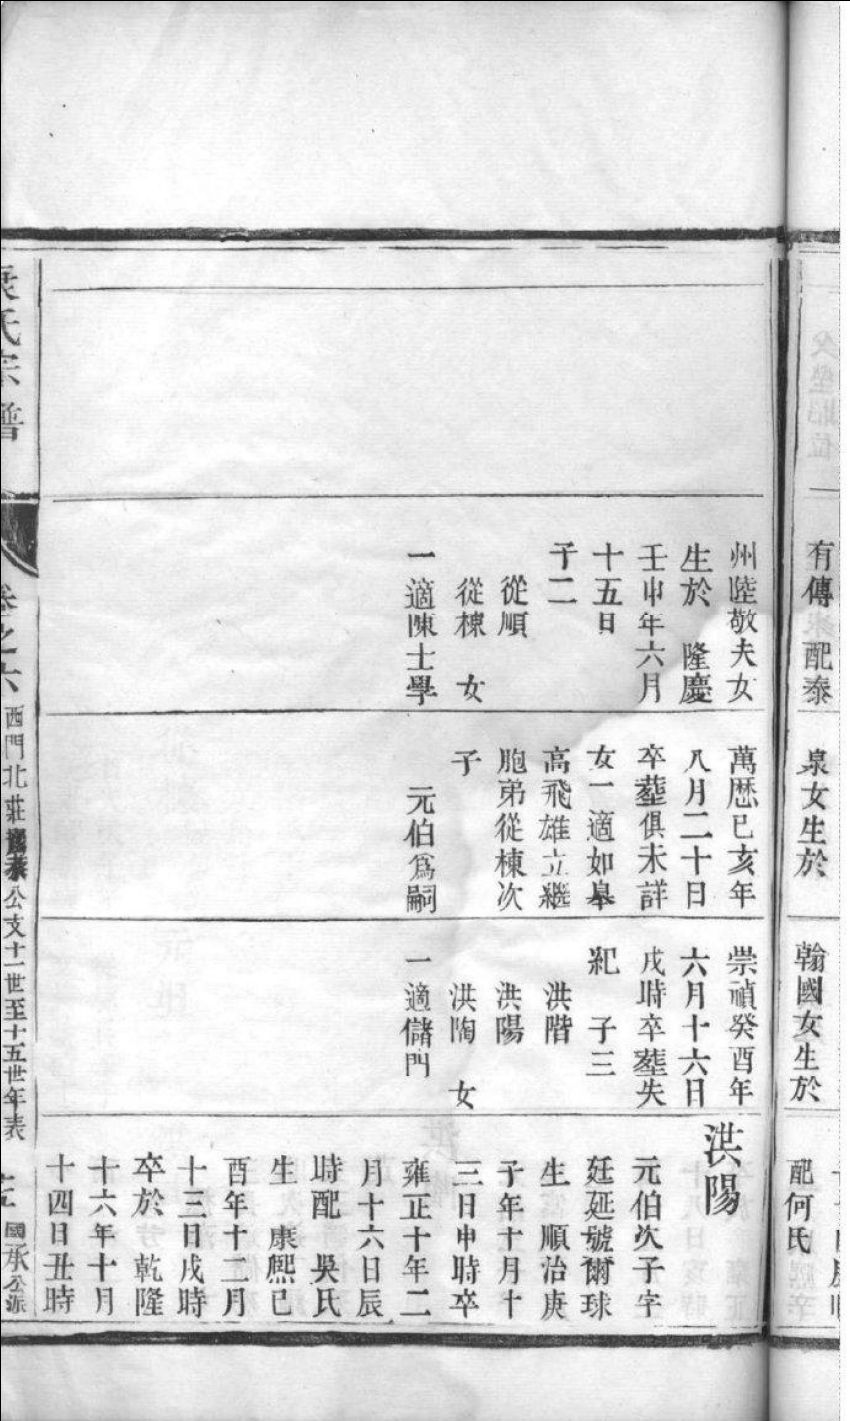 有傳配泰
泉女生於
翰國女生於
配何氏
州陸敬夫女
生於　隆慶
壬申年六月
十五日
子二
從順
從棟　女
一適陳士學
萬歷己亥年
八月二十日
卒塟俱未詳
女一適如皋
高飛雄立繼
胞弟從棟次
子
元伯爲嗣
崇禎癸酉年
六月十六日
戌時卒塟失
紀　子三
洪階
洪陽
洪陶　女
一適儲門
洪陽
元伯次子字
廷延號爾球
生　順治庚
子年十月十
三日申時卒
雍正十年二
月十六日辰
時配　吳氏
生　康熙己
酉年十二月
十三日戌時
卒於　乾隆
十六年十月
十四日丑時
氏宗譜
卷之六
西門北莊
公支十一世至十五世年表
國承公派